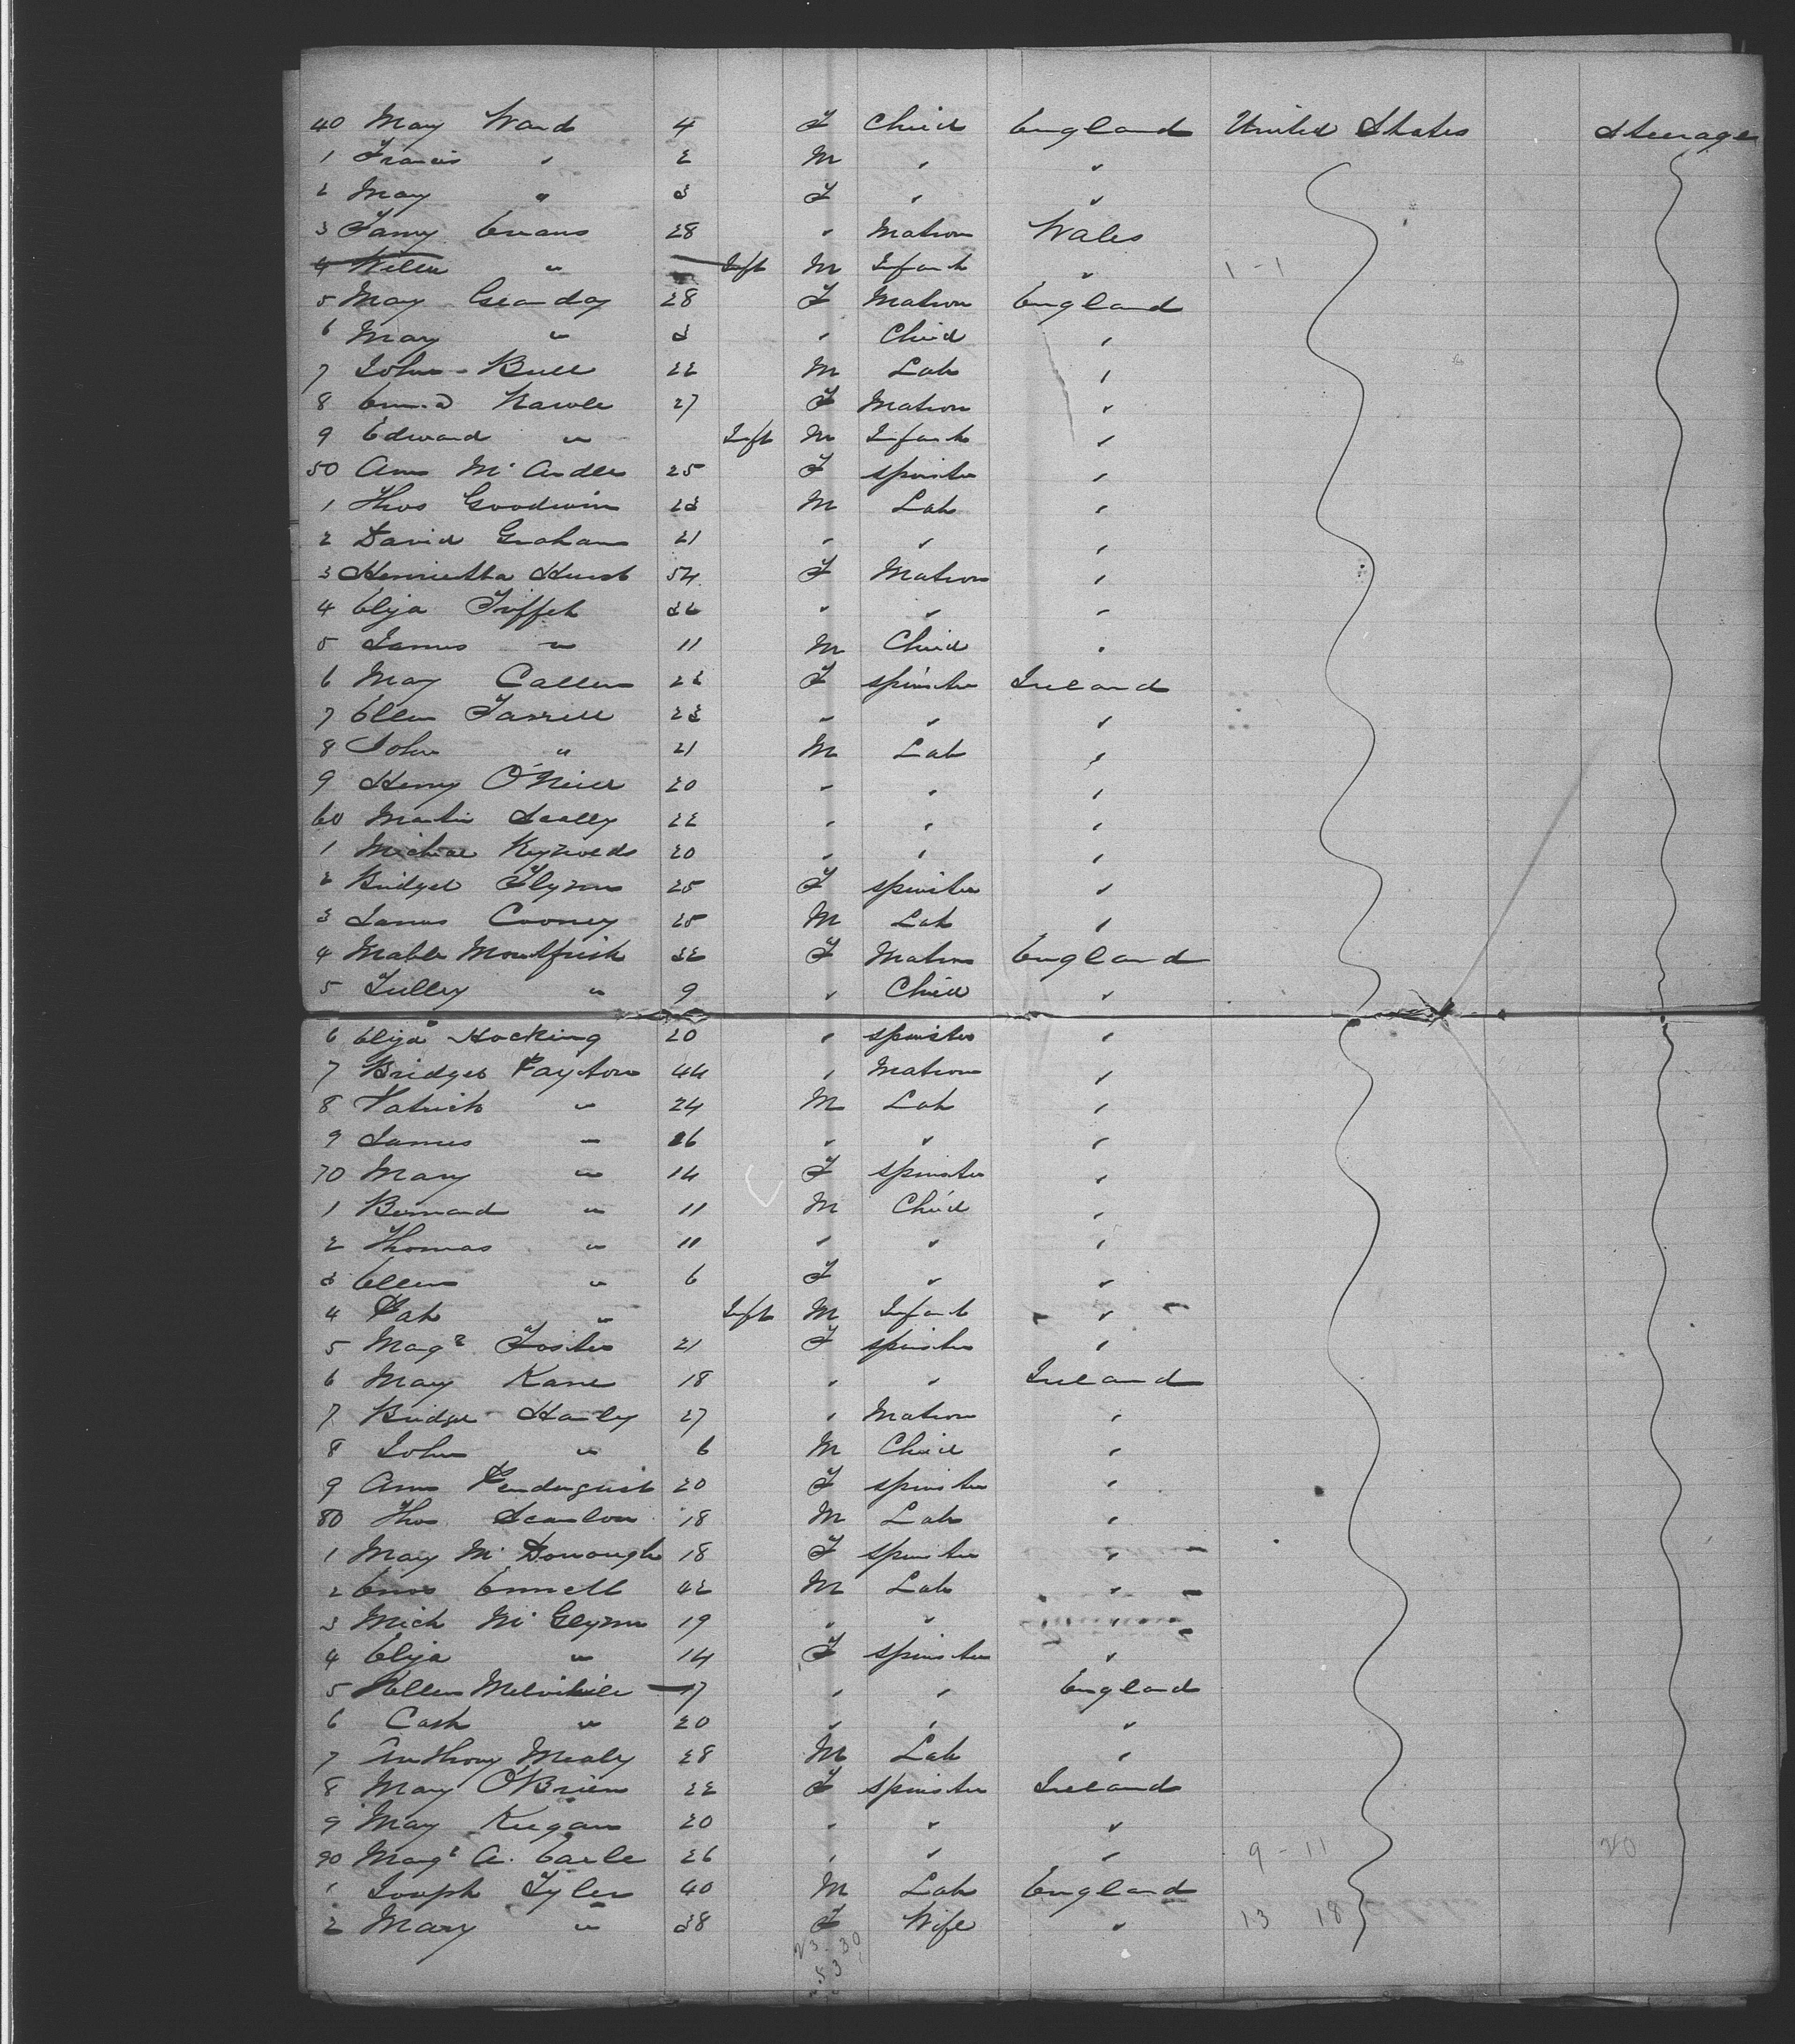 40 May Ward 4 F Child England United States Steerage
1 Francis " 2 M " "
2 May " 3 F " "
3 Fanny Evans 28 " Matron Wales
4 Willm " Inft M Infant " 1-1
5 May 28 F Matron England
6 May " 3 " Child "
7 John Bull 22 M Lab "
8 Nawle 27 F Matron "
9 Edward " Inft M Infant "
50 Ann McArdle 25 F Spinster "
1 Thos Goodwin 23 M Lab "
2 David Graham 21 " " "
3 Henrietta Hurst 54 F Matron "
4 Eliza Triffet 32 " " "
5 James " 11 M Child "
6 May Callen 22 F Spinster Ireland
7 Ellen Farrell 23 " " "
8 John " 21 M Lab "
9 Henry O'Neill 20 " " "
60 Martin Scally 22 " " "
1 Michael Reynolds 20 " " "
2 Bridget Flynn 25 F Spinster "
3 James Cooney 25 M Lab "
4 Mable 32 F Matron England
5 Tilley " 9 " Child "
6 Eliza Hocking 20 " Spinster "
7 Bridget Payton 44 " Matron "
8 Patrick " 24 M Lab "
9 James " 16 " " "
70 Mary " 14 F Spinster "
1 Bernard " 11 M Child "
2 Thomas " 11 " " "
3 Ellen " 6 F " "
4 Pat " Inft M Infant "
5 Magt Foster 21 F Spinster "
6 May Kane 18 " " Ireland
7 Bridget Hanley 27 " Matron "
8 John " 6 M Child "
9 Ann Pendergrist 20 F Spinster "
80 Thos Scanlon 18 M Lab "
1 May McDonough 18 F Spinster "
2 Enos Ennell 42 M Lab "
3 Mich McGlynn 19 " " "
4 Eliza " 14 F Spinster "
5 Ellen Melville 17 " " England
6 Cath " 20 " " "
7 Anthony Mealy 28 M Lab "
8 Mary O'Brien 22 F Spinster Ireland
9 May Keegan 20 " " "
90 Magt A. Earle 26 " " " 9-11 20
1 Joseph Tyler 40 M Lab England
2 Mary " 38 F Wife " 13 18
23 30
53